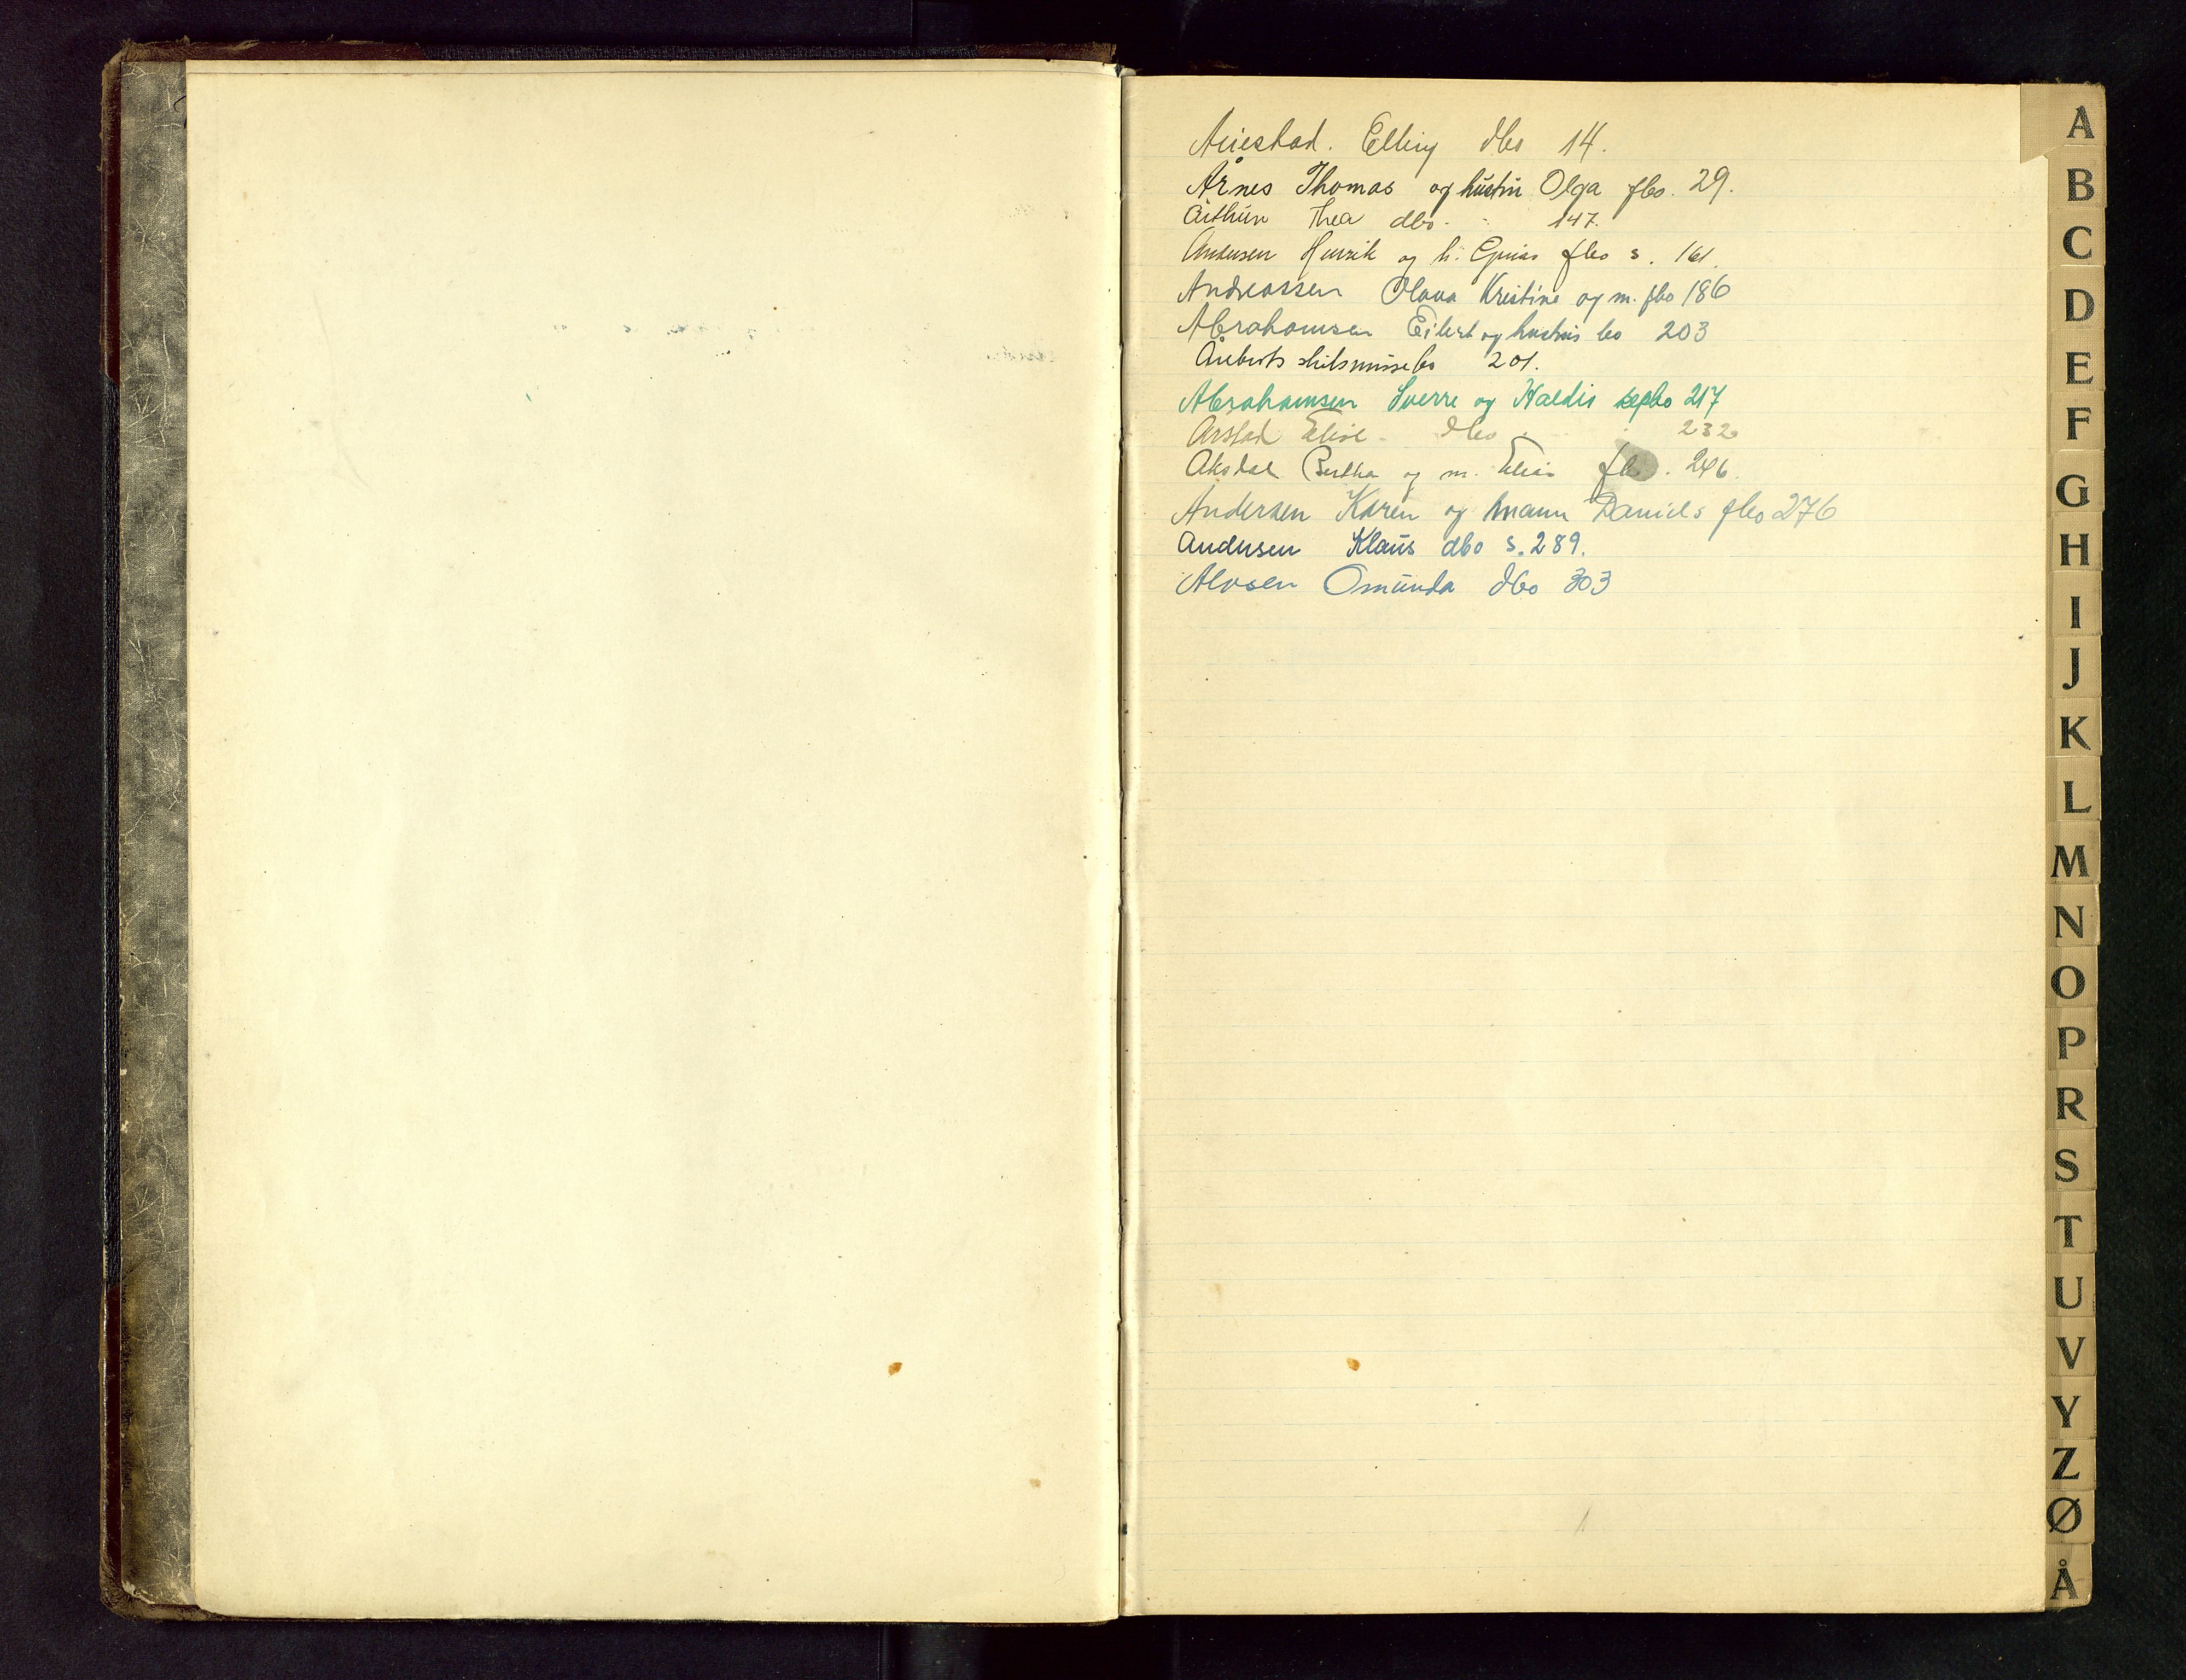 Auestad. Elling dbo 14.
Årnes Thomas og hustru Olga fbo. 29.
Arthur Thea dbo. 147.
Andersen Henrik og h. fbo s. 161.
Andreassen Olava Kristine og m. fbo 186
Abrahamsen Eilert og hustrus bo 203
skilsmissebo 201.
Abrahamsen Sverre og Haldis sepbo 217
Arstad Elise dbo 232
Aksdal Bertha og m. Elias fbo. 246.
Andersen Karen og mann Daniels fbo 276
Andersen Klaus dbo s. 289.
Alvsen Omunda dbo 303
A
B
C
D
E
F
G
H
I
J
K
L
M
N
O
P
R
S
T
U
V
Y
Z
Ø
Å